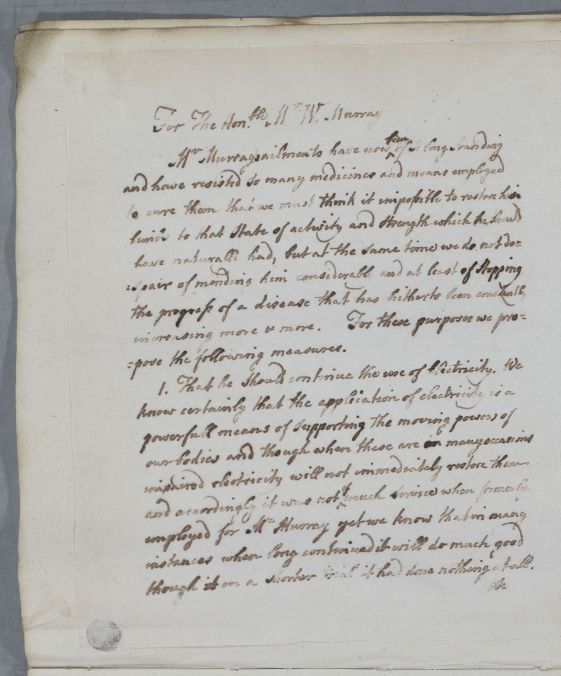 For The Hon.ble Mr Wm Murray
Mr Murrays ailments have now been of so long standing
and have resisted so many medicines and means employed
to cure them that we must think it impossible to restore his
limbs to that State of activity and Strength which he should
have naturall had, but at the same time we do not de=
=spair of mending him considerabl and at least of stopping
the progress of a disease that has hitherto been constantly
increasing more & more. For these purposes we pro=
=pose the following measures.
1. That he should continue the use of Electricity. We
know certainly that the application of electricity is a
powerfull means of supporting the moving powers of
our bodies and though when these are on many occasions
impaired electricity will not immediately restore them
and accordingly it was not of much service when formerly
employed for Mr Murray yet we know that in many
instances when long continued it will do much good
though it on a shorter trial it had done nothing at all.
We